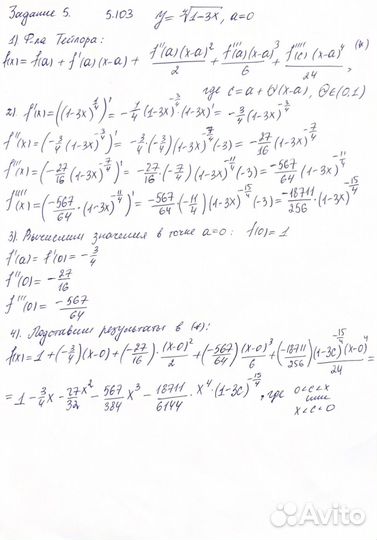 Задание 5. 5.103 y = ∜(1-3x), a=0
1) Ф-ла Тейлора:
f(x) = f(a) + f'(a)(x-a) + f''(a)(x-a)²/2 + f'''(a)(x-a)³/6 + f''''(c)(x-a)⁴/24, (*)
где c = a + θ(x-a), θ∈(0,1)
2) f'(x) = ((1-3x)^(1/4))' = -1/4 (1-3x)^(-3/4) (1-3x)' = -3/4 (1-3x)^(-3/4)
f''(x) = (-3/4 (1-3x)^(-3/4))' = -3/4·(-3/4)(1-3x)^(-7/4)(-3) = -27/16 (1-3x)^(-7/4)
f'''(x) = (-27/16 (1-3x)^(-7/4))' = -27/16·(-7/4)(1-3x)^(-11/4)(-3) = -567/64 (1-3x)^(-11/4)
f''''(x) = (-567/64·(1-3x)^(-11/4))' = -567/64·(-11/4)(1-3x)^(-15/4)(-3) = -18711/256·(1-3x)^(-15/4)
3) Вычислим значения в точке a=0: f(0)=1
f'(a) = f'(0) = -3/4
f''(0) = -27/16
f'''(0) = -567/64
4) Подставим результаты в (*):
f(x) = 1 + (-3/4)(x-0) + (-27/16)·(x-0)²/2 + (-567/64)(x-0)³/6 + (-18711/256)(1-3c)^(-15/4)(x-0)⁴/24 =
= 1 - 3/4x - 27x²/32 - 567/384 x³ - 18711/6144·x⁴·(1-3c)^(-15/4), где 0<c<x
или
x<c<0
Avito